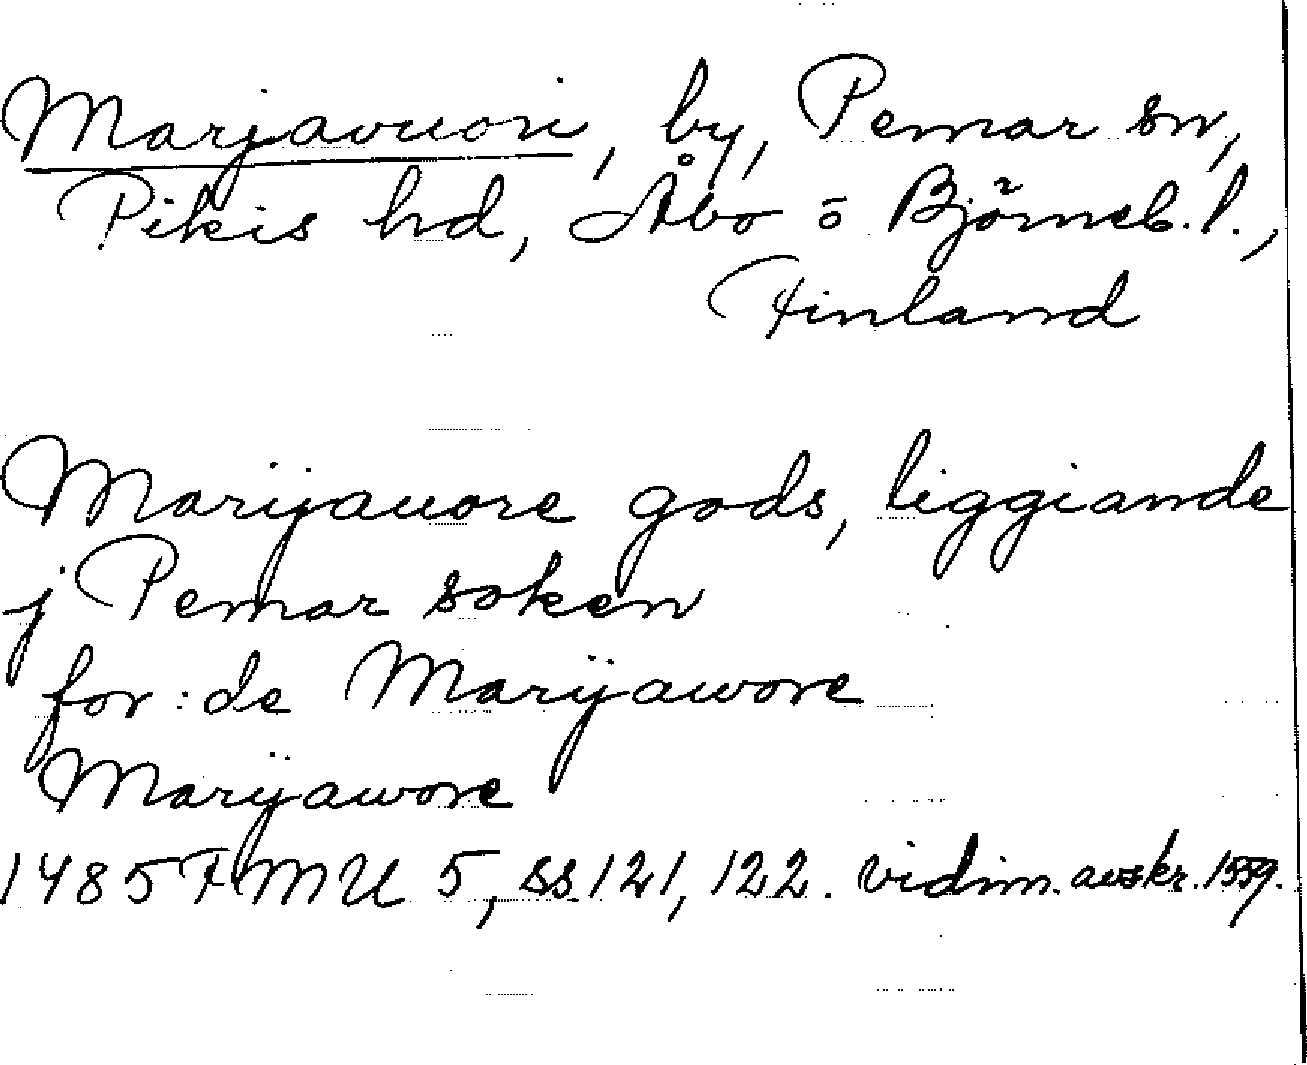 Marjavuori, by, Pemar sn,
Pikis hd, Åbo o Björneb. l.,
Finland
Marijauore gods, liggiande
j Pemar soken
for:de Marijawore
Marijawore
1485 FMU 5, ss. 121, 122. vidim. avskr. 1559.